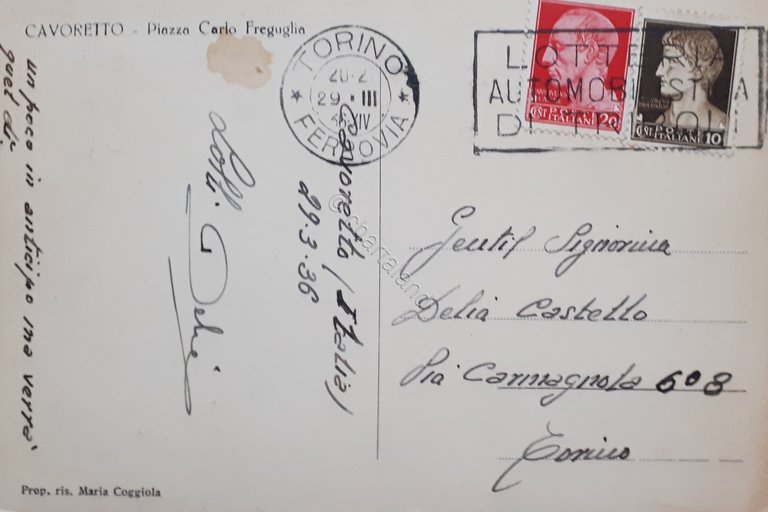 CAVORETTO - Piazza Carlo Freguglia
TORINO
29 · III
XIV
FERROVIA
LOTTERIA
AUTOMOBILISTICA
DI TRIPOLI
POSTE
ITALIANE
CENT 20
POSTE
ITALIANE
CENT 10
un poco in anticipo ma verrà
quel dì.
Cavoretto (Italia)
29.3.36
Gentil Signorina
Delia Castello
Via Carmagnola 6 o 8
Torino
Prop. ris. Maria Coggiola